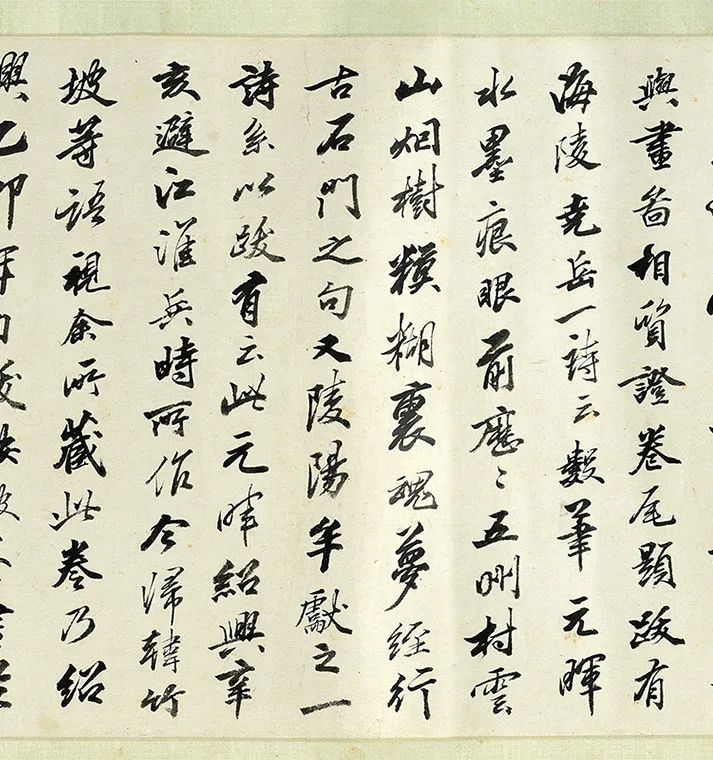 與畫啚相質證卷尾題跋有
海陵堯岳一詩云數筆元暉
水墨痕眼前歷〻五州村雲
山烟樹模糊裏魂夢經行
古石門之句又陵陽牟獻之一
詩系以跋有云此元暉紹興辛
亥避江淮兵時所作今歸韓竹
坡等語視余所藏此卷乃紹
興乙卯